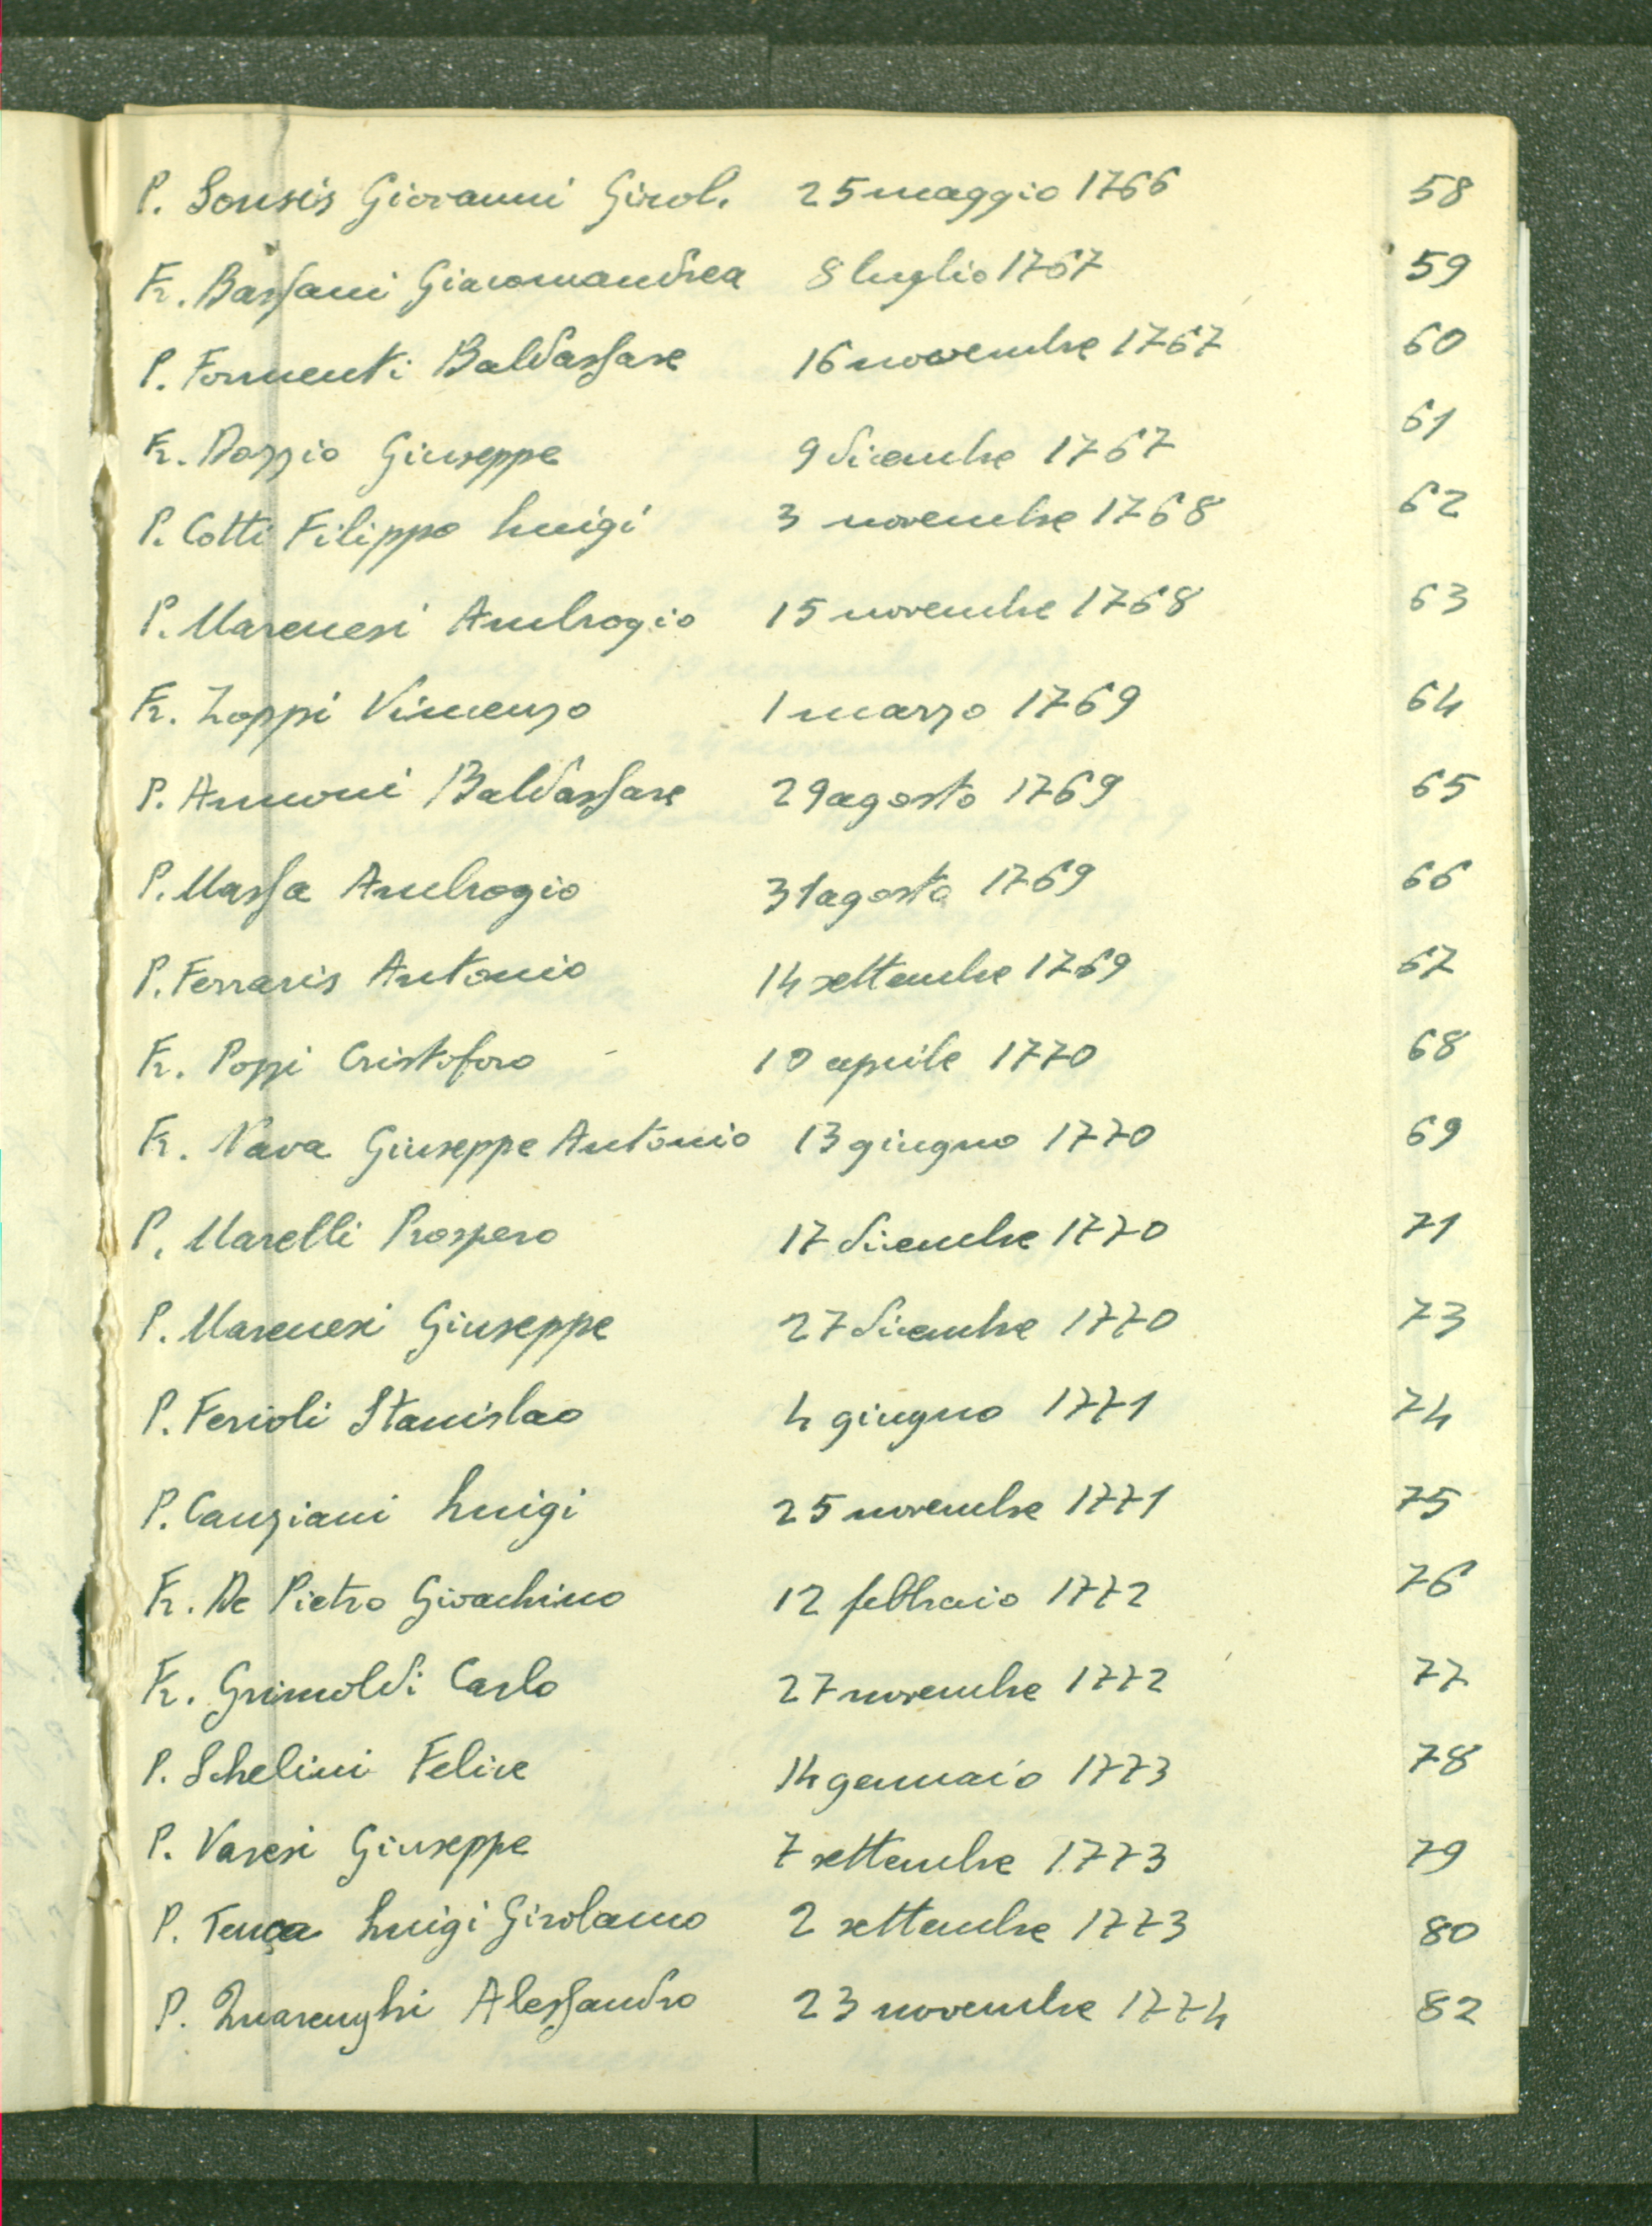 P. Sonsis Giovanni Girol. 25 maggio 1766 58
Fr. Bassani Giacomandrea 8 luglio 1767 59
P. Formenti Baldassare 16 novembre 1767 60
Fr. Dozzio Giuseppe 9 dicembre 1767 61
P. Cotti Filippo Luigi 3 novembre 1768 62
P. Marenesi Ambrogio 15 novembre 1768 63
Fr. Zoppi Vincenzo 1 marzo 1769 64
P. Annoni Baldassare 29 agosto 1769 65
P. Massa Ambrogio 31 agosto 1769 66
P. Ferraris Antonio 14 settembre 1769 67
Fr. Pozzi Cristoforo 10 aprile 1770 68
Fr. Nava Giuseppe Antonio 13 giugno 1770 69
P. Marelli Prospero 17 dicembre 1770 71
P. Marenesi Giuseppe 27 dicembre 1770 73
P. Ferioli Stanislao 4 giugno 1771 74
P. Canziani Luigi 25 novembre 1771 75
Fr. De Pietro Gioachino 12 febbraio 1772 76
Fr. Grimoldi Carlo 27 novembre 1772 77
P. Schelini Felice 14 gennaio 1773 78
P. Varesi Giuseppe 7 settembre 1773 79
P. Tenca Luigi Girolamo 2 settembre 1773 80
P. Quarenghi Alessandro 23 novembre 1774 82